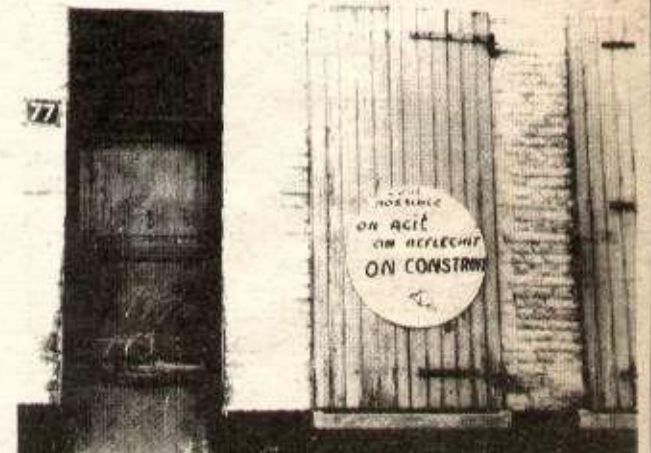 77
POSSIBLE
ON AGIT
ON REFLECHIT
ON CONSTRUIT